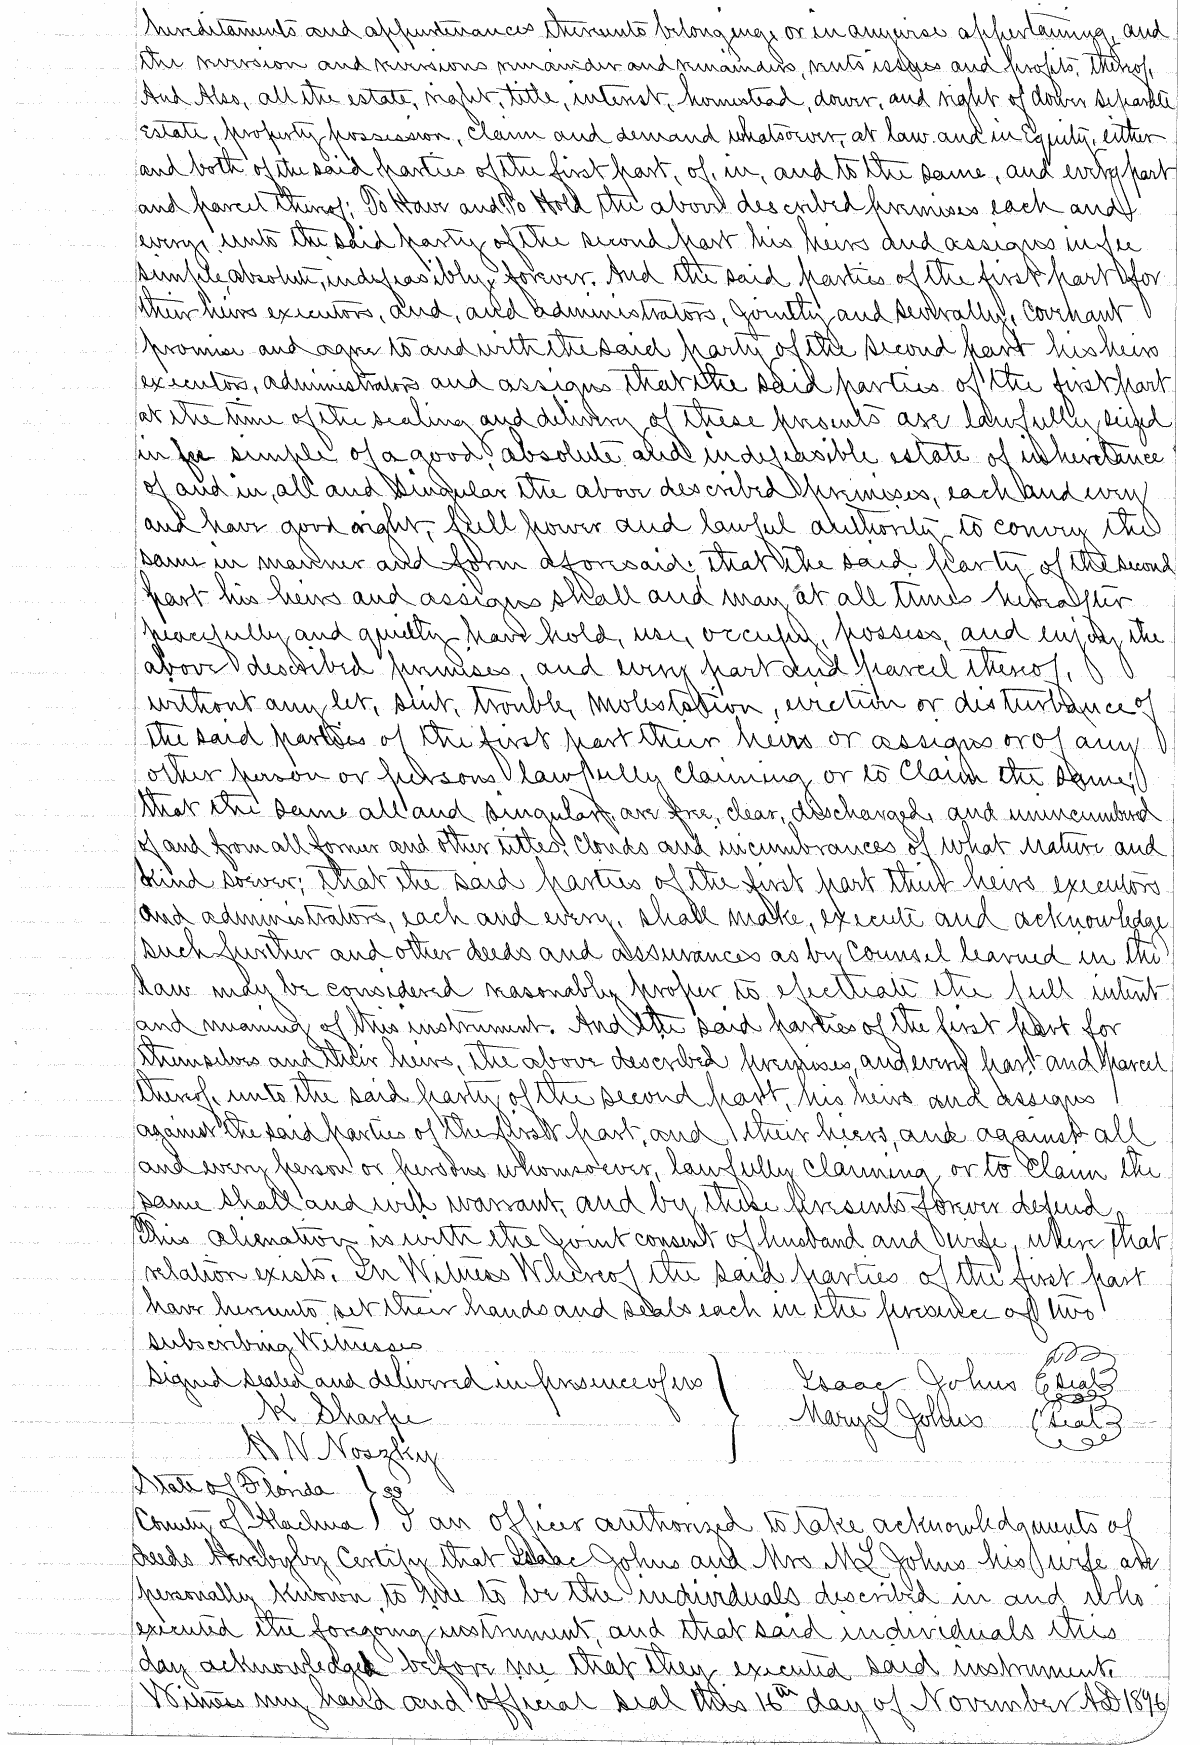 hereditaments and appurtenances thereunto belonging, or in anywise appertaining, and
the reversion and reversions remainder and remainders, rents issues and profits, thereof,
And Also, all the estate, right, title, interest, homestead, dower, and right of dower separate
estate, property possession, claim and demand whatsoever, at law and in Equity, either
and both of the said parties of the first part, of, in, and to the same, and every part
and parcel thereof; To Have and To Hold the above described premises each and
every, unto the said party of the second part his heirs and assigns in fee
simple absolute, indefeasibly, forever. And the said parties of the first part for
their heirs executors, and, and administrators, Jointly and Severally, Covenant
promise and agree to and with the said party of the second part his heirs
executors, administrators and assigns that the said parties of the first part
at the time of the sealing and delivery of these presents are lawfully seized
in fee simple of a good, absolute and indefeasible estate of inheritance
of and in, all and Singular the above described premises, each and every
and have good right, full power and lawful authority to convey the
same in manner and form aforesaid; that the said party of the second
part his heirs and assigns shall and may at all times hereafter
peacefully and quietly have hold, use, occupy, possess, and enjoy the
above described premises, and every part and parcel thereof,
without any let, suit, trouble, Molestation, eviction or disturbance of
the said parties of the first part their heirs or assigns or of any
other person or persons lawfully claiming or to Claim the same;
that the same all and singular, are free, clear, discharged, and unincumbred
of and from all former and other titles, Clouds and incumbrances of what Nature and
kind soever; that the said parties of the first part their heirs executors
and administrators, each and every, shall make, execute and acknowledge
such further and other deeds and assurances as by Counsel learned in the
law may be considered reasonably proper to efectuate the full intent
and meaning of this instrument. And the said parties of the first part for
themselves and their heirs, the above described premises, and every part and parcel
thereof, unto the said party of the second part, his heirs and assigns
against the said parties of the first part, and their hiers, and against all
and every person or persons whomsoever, lawfully claiming or to Claim the
same shall and will warrant, and by these presents forever defend
This alienation is with the Joint consent of husband and wife, where that
relation exists. In Witness Whereof the said parties of the first part
have hereunto set their hands and seals each in the presence of two
subscribing Witnesses
Signed sealed and delivered in presence of us } Isaac Johns (Seal)
K Sharpe Mary L Johns (Seal)
H N Noszky
State of Florida } ss
County of Alachua } I an officer authorized to take acknowledgments of
deeds Herebyby Certify that Isaac Johns and Mrs M L Johns his wife are
personally known to me to be the individuals described in and who
executed the foregoing instrument, and that said individuals this
day acknowledged before me that they executed said instrument.
Witness my hand and official seal this 16th day of November AD 1896